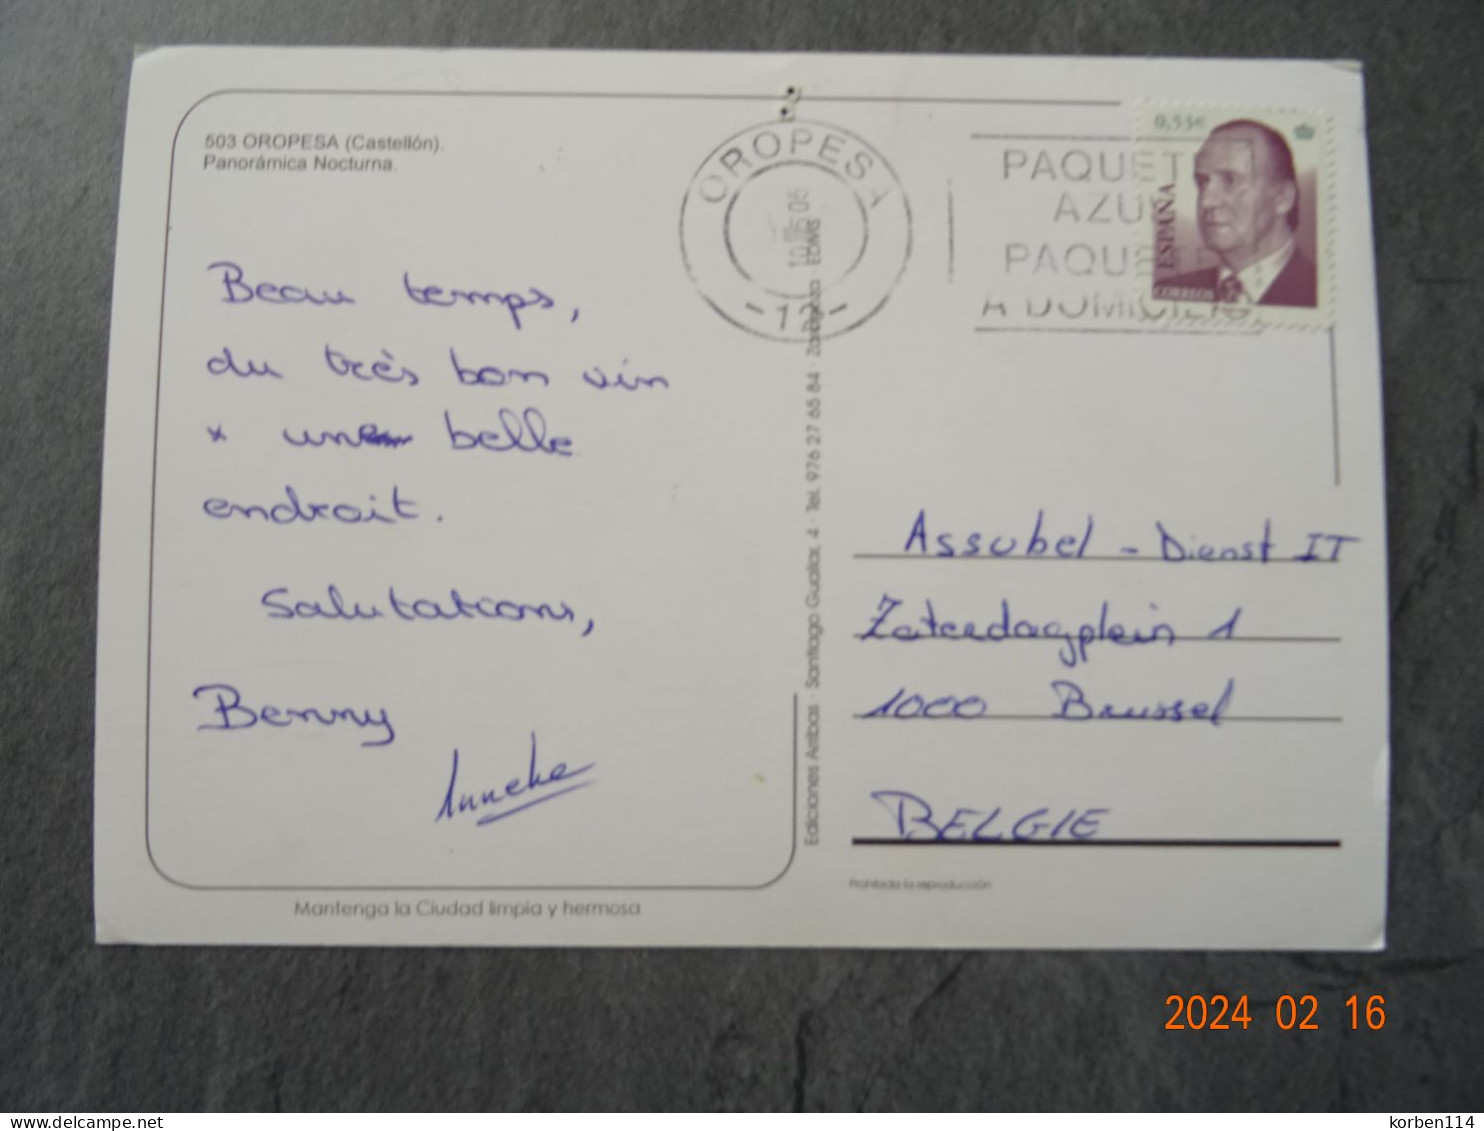 503 OROPESA (Castellón).
Panorámica Nocturna.
Beau temps,
du très bon vin
* une belle
endroit.
Salutations,
Benny
Anneke
Mantenga la Ciudad limpia y hermosa
Ediciones Arribas · Santiago Guallar, 4 · Tel. 976 27 65 84 · Zaragoza
OROPESA
05
-12-
PAQUET
AZU
PAQU
A DOMICILIO
0,53€
ESPAÑA
CORREOS
Assubel - Dienst IT
Zaterdagplein 1
1000 Brussel
BELGIE
Prohibida la reproducción
2024 02 16
delcampe.net
korben114